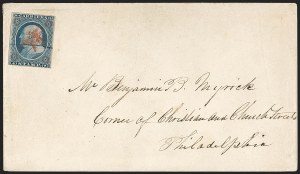 Mr Benjamin B. Myrick
Corner of Christian and Church Streets
Philadelphia